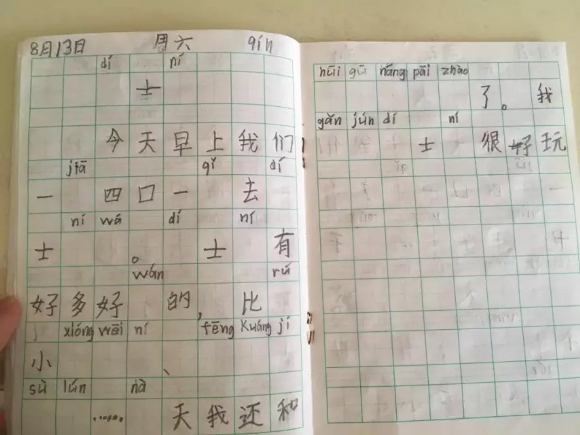 8月13日 周六 qín
dí ní
士
今天早上我们
jiā qǐ dí
一 四口一 去
ní wá dí ní
士 。 士 有
wán rú
好多好 的，比
xióng wāi ní tēng kuáng jí
小 、
sù lún nà
…… 天我还和
hūi gū náng pāi zhào
了。我
gǎn jún dí ní
士 很好玩